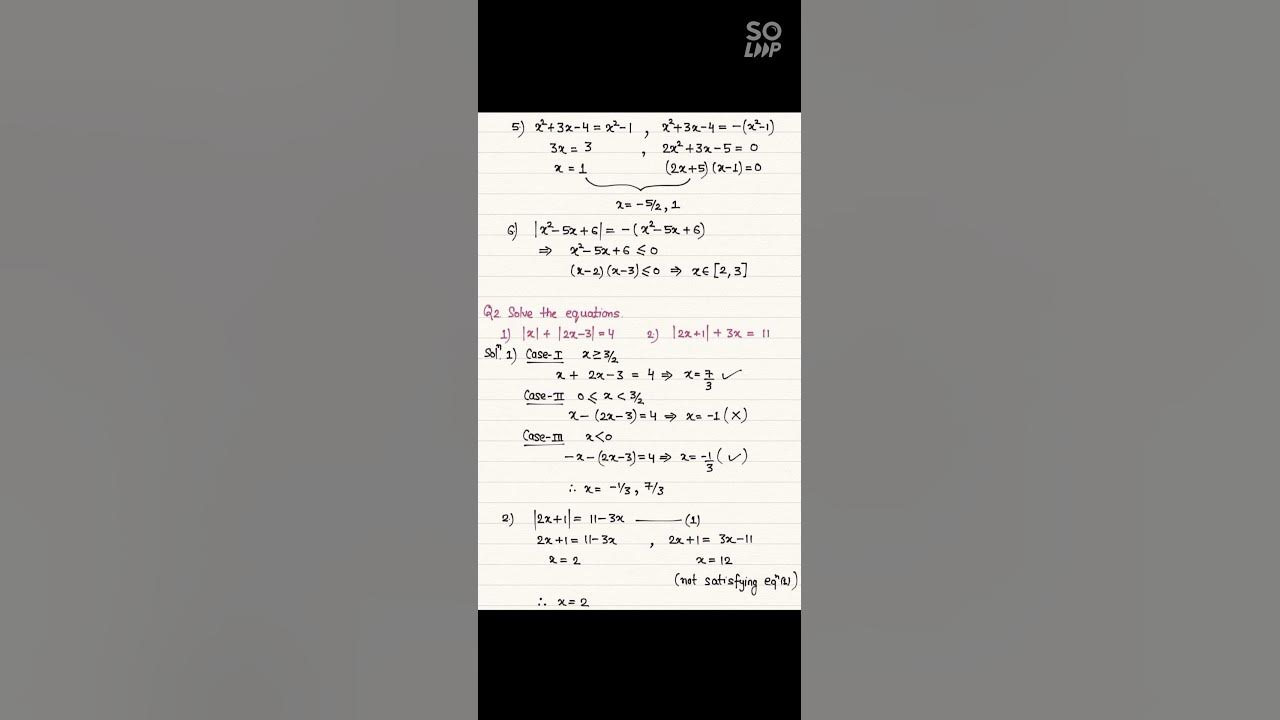 SO
LOOP
5) x²+3x-4 = x²-1 , x²+3x-4 = -(x²-1)
3x = 3 , 2x²+3x-5 = 0
x = 1 (2x+5)(x-1)=0
x = -5/2, 1
6) |x²-5x+6| = -(x²-5x+6)
⇒ x²-5x+6 ≤ 0
(x-2)(x-3) ≤ 0 ⇒ x∈[2,3]
Q2 Solve the equations.
1) |x| + |2x-3| = 4 2) |2x+1| + 3x = 11
Solⁿ. 1) Case-I x ≥ 3/2
x + 2x-3 = 4 ⇒ x = 7/3 ✓
Case-II 0 ≤ x < 3/2
x-(2x-3)=4 ⇒ x = -1 (×)
Case-III x<0
-x-(2x-3)=4 ⇒ x = -1/3 (✓)
∴ x = -1/3, 7/3
2) |2x+1| = 11-3x —— (1)
2x+1 = 11-3x , 2x+1 = 3x-11
x = 2 x = 12
(not satisfying eqⁿ(1))
∴ x = 2